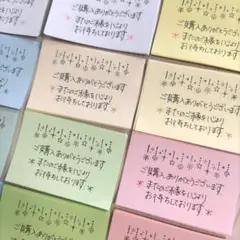 ご購入ありがとうございます
またのご縁を心より
お待ちしております
ご購入ありがとう
またのご縁を
お待ちして
ご購入ありがとうございます
またのご縁を心より
お待ちしております
ご購入ありがとうございます
またのご縁を心より
お待ちしております
ご購入ありがとうございます
またのご縁を心より
お待ちしております
ご購入ありがとうございます
またのご縁を心より
お待ちしております